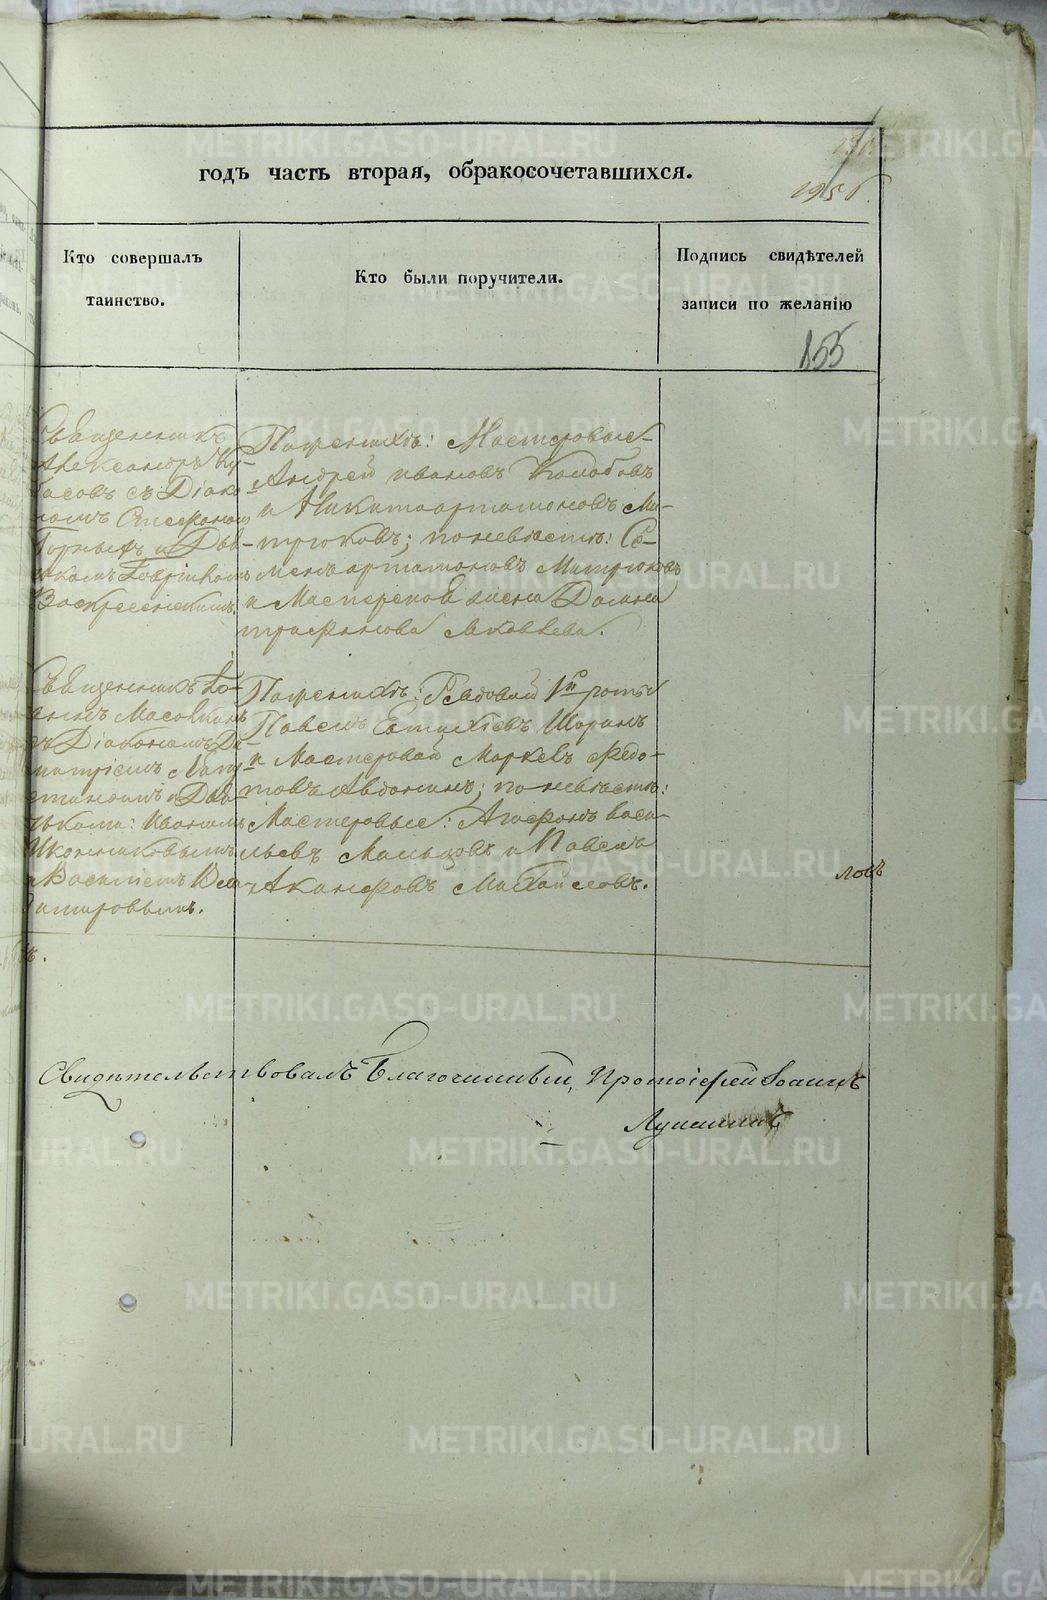 годъ часть вторая, обракосочетавшихся.
195 б.
Кто совершалъ
таинство.
Кто были поручители.
Подпись свидѣтелей
записи по желанію
155
Священникъ
Александръ
с Діако
номъ Стефаномъ
Горныхъ и Дья-
Воскресенскимъ.
Поженихѣ: Мастеровые
Андрей ивановъ Колобовъ
и Никита артамоновъ Ми-
трюковъ; поневѣстѣ: Се-
менъ артамоновъ Митрюковъ
и Мастерской Домна
трифанова Яковлева.
Священникъ Іо-
аннъ
съ Діакономъ Ди-
митріемъ
и Дья-
чьками: Иваномъ
Иконниковымъ
и Василіемъ
Поженихѣ: Рядовой 1й роты
Павелъ Шаринъ
и Мастеровой Маркелъ Федо-
товъ Авдонинъ; поневѣстѣ:
Мастеровые: Агафонъ васи-
льевъ Мальцовъ и Павелъ
Акинфовъ Михайловъ.
ловъ
Свидѣтельствовалъ Благочинный, Протоіерей Іоаннъ
METRIKI.GASO-URAL.RU